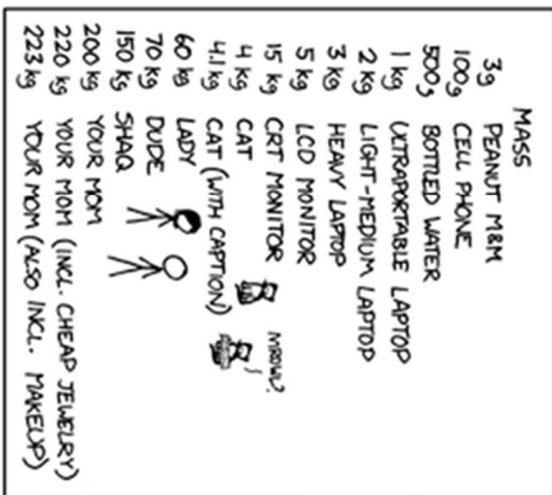 MASS
3g PEANUT M&M
100g CELL PHONE
500g BOTTLED WATER
1 kg ULTRAPORTABLE LAPTOP
2 kg LIGHT-MEDIUM LAPTOP
3 kg HEAVY LAPTOP
5 kg LCD MONITOR
15 kg CRT MONITOR
4 kg CAT
MROWL?
4.1 kg CAT (WITH CAPTION)
60 kg LADY
70 kg DUDE
150 kg SHAQ
200 kg YOUR MOM
220 kg YOUR MOM (INCL. CHEAP JEWELRY)
223 kg YOUR MOM (ALSO INCL. MAKEUP)